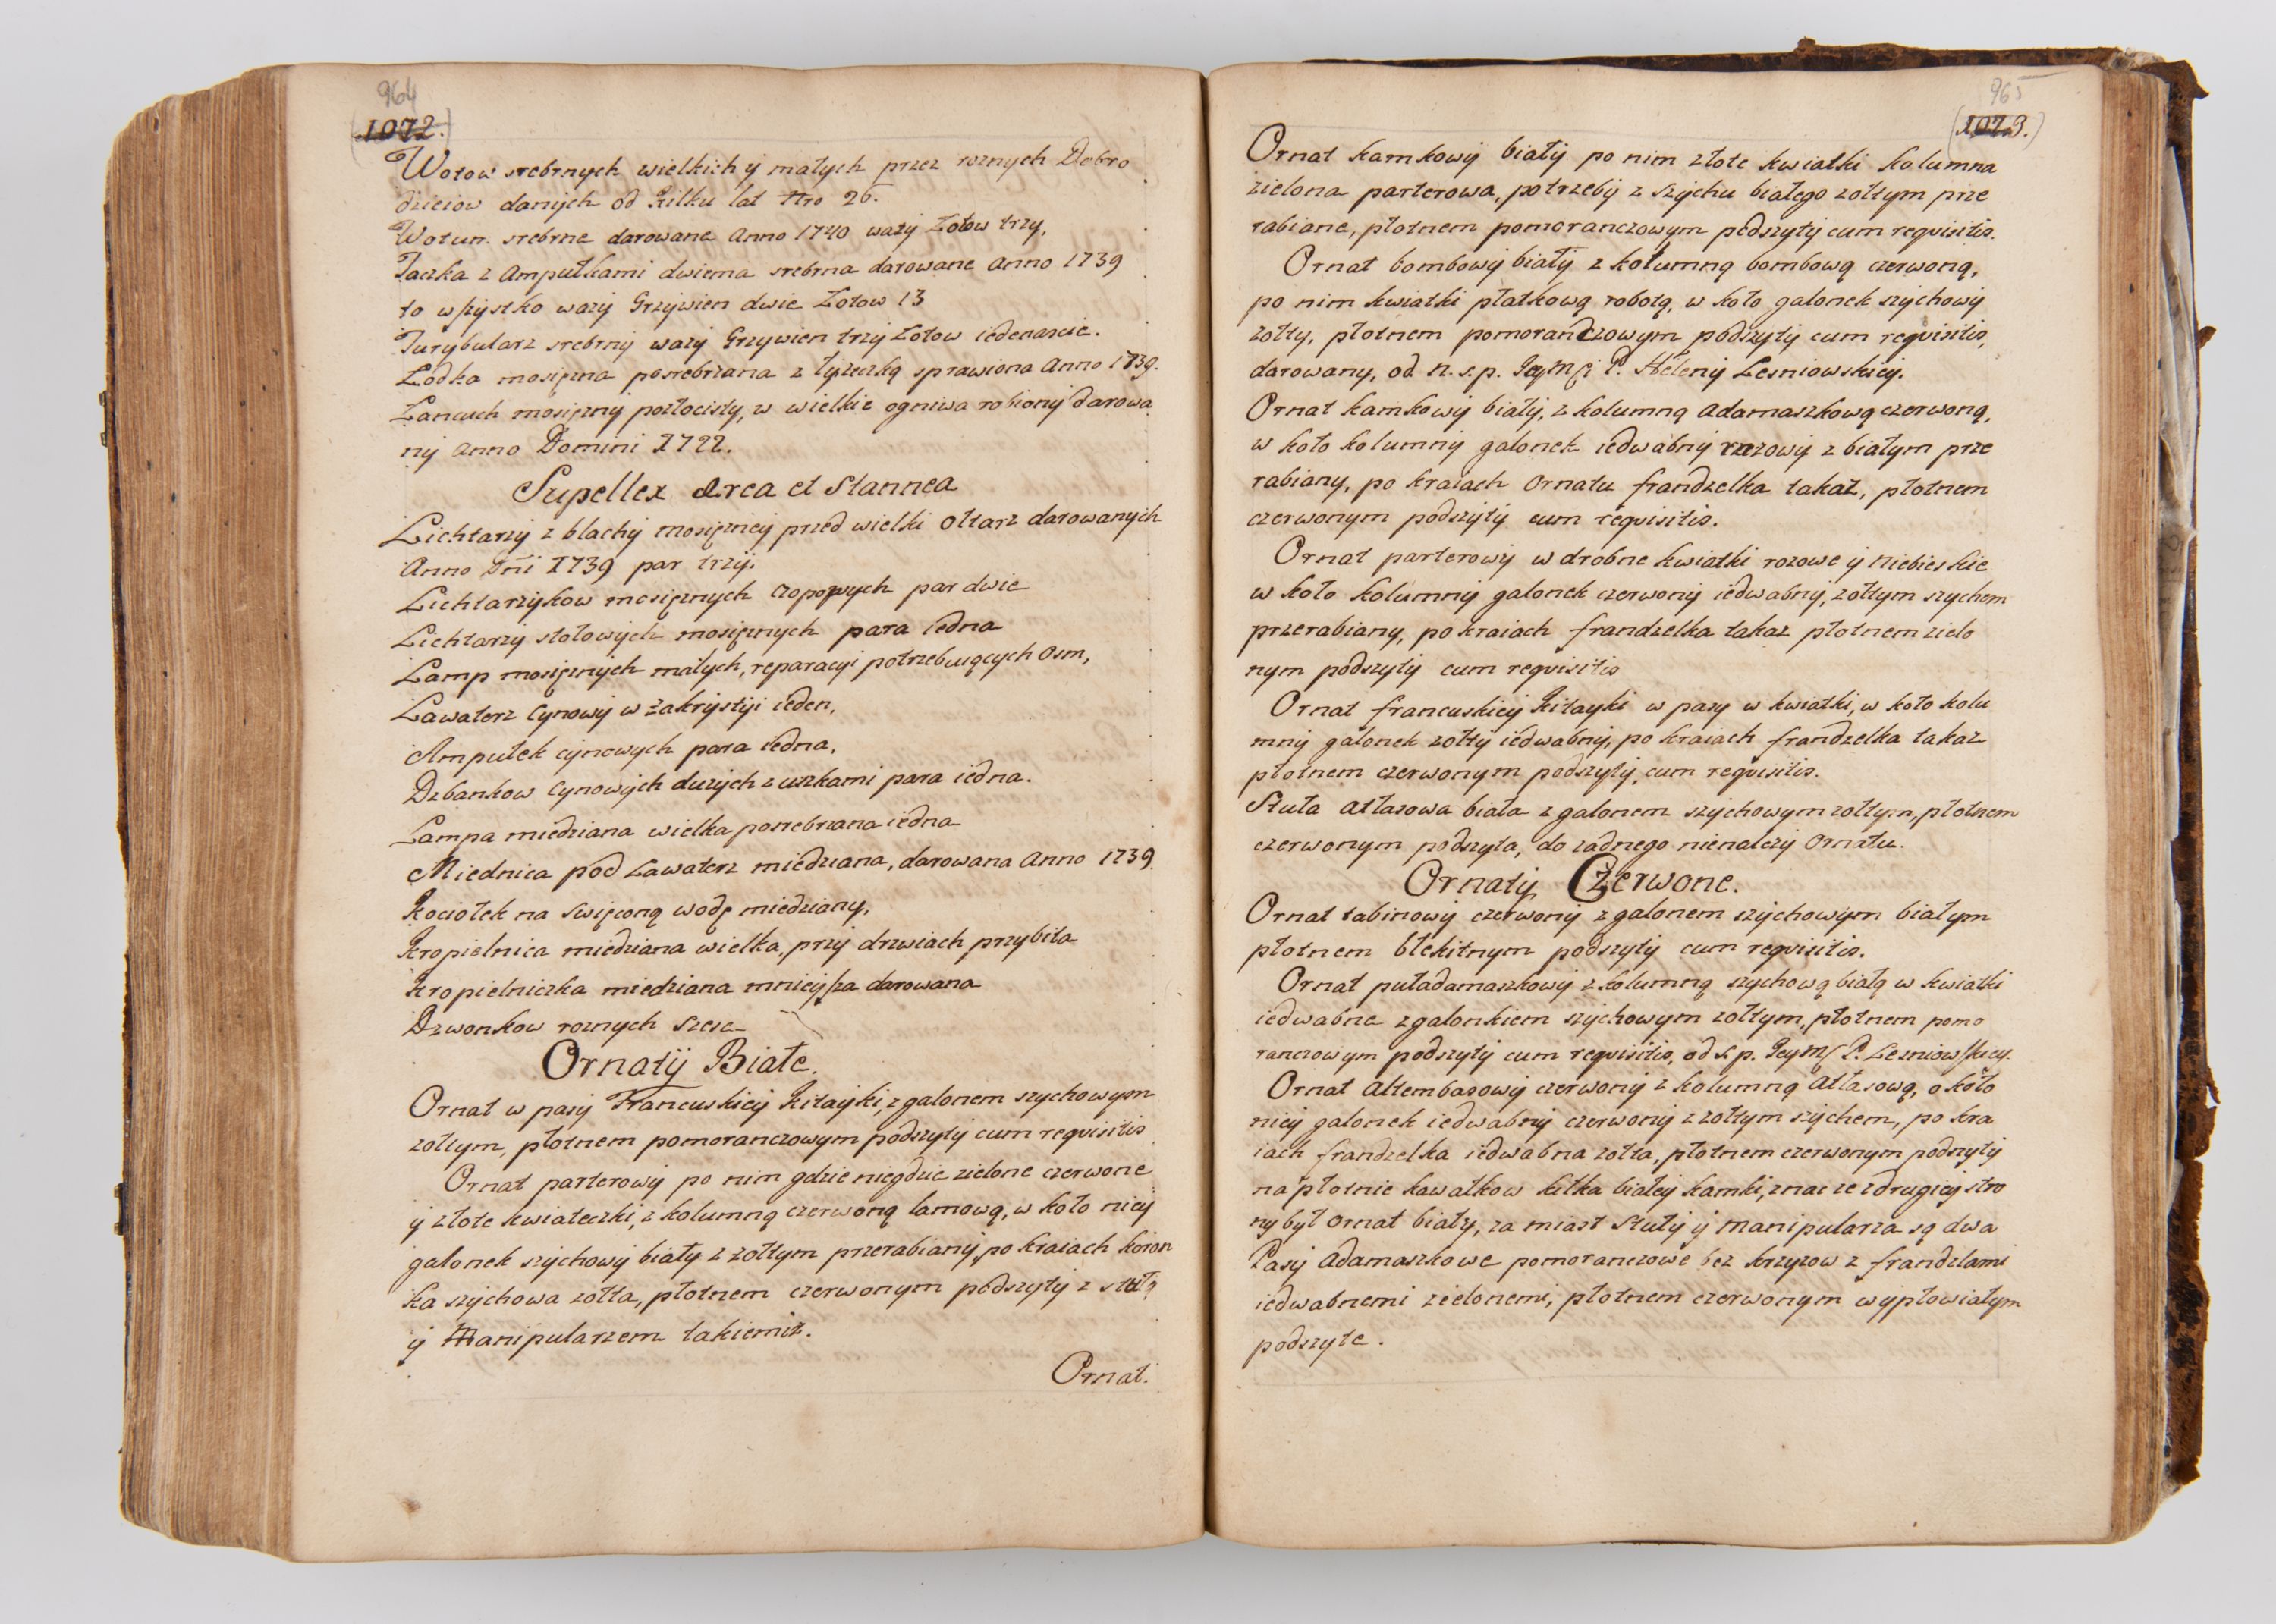 964
(1072.)
Wotow srebrnych wielkich ÿ małych przez roznych Dobro
dzieiow danÿch od kilku lat Nro 26.
Wotum srebrne darowane Anno 1740 wazÿ Łotow trzy,
Taczka z Ampułkami dwiema srebrna darowane Anno 1739
to wszÿstko wazÿ Grzÿwien dwie Łotow 13
Turÿbularz srebrnÿ wazÿ Grzywien trzÿ Łotow iedenascie.
Łodka mosięzna posrebrzana z łyzeczką sprawiona Anno 1739.
Łancuch mosięznÿ pozłocisty, w wielkie ogniwa robionÿ darowa
nÿ Anno Domini 1722.
Supellex ærea et Stannea
Lichtarzÿ z blachÿ mosięzneÿ przed wielki Ołtarz darowanÿch
Anno Dni 1739 par trzÿ.
Lichtarzÿkow mosięznych czopowych par dwie
Lichtarzÿ stołowÿch mosięznych para iedna
Lamp mosięznÿch małych, reparacyi potrzebuiących osm,
Lawaterz Cynowÿ w Zakrÿstÿi ieden,
Ampułek cÿnowych para iedna,
Dzbankow Cynowÿch duzÿch z uszkami para iedna.
Lampa miedziana wielka posrebrzana iedna
Miednica pod Lawaterz miedziana, darowana Anno 1739.
Kociołek na swięconą wodę miedziany,
Kropielnica miedziana wielka, przÿ drzwiach przybita
Kropielniczka miedziana mnieÿsza darowana
Dzwonkow roznych szesc
Ornatÿ Białe.
Ornat w pasÿ Francuskieÿ Kitaÿki, z galonem szychowym
zołtym, płotnem pomoranczowym podszytÿ cum reqvisitis
Ornat parterowÿ po nim gdzie niegdzie zielone czerwone
ÿ złote kwiateczki, z kolumną czerwoną lamową, w koło nieÿ
galonek szÿchowÿ biały z zołtym przerabianÿ, po kraiach koron
ka szÿchowa zołta, płotnem czerwonym podszytÿ z stułą
ÿ Manipularzem takiemiz.
Ornat.
965
(1073.)
Ornat kamkowÿ białÿ po nim złote kwiatki kolumna
zielona parterowa, potrzebÿ z szÿchu białego zołtym prze
rabiane, płotnem pomoranczowym podszytÿ cum reqvisitis.
Ornat bombowÿ białÿ z kolumną bombową czerwoną,
po nim kwiatki płatkową robotą, w koło galonek szychowÿ
zołty, płotnem pomoranczowym podszytÿ cum reqvisitis,
darowany, od n. s. p. JeyMci P. Helenÿ Lesniowskieÿ.
Ornat kamkowÿ białÿ, z kolumną Adamaszkową czerwoną,
w koło kolumnÿ galonek iedwabnÿ rozowÿ z białym prze
rabiany, po kraiach Ornatu frandzelka takaz, płotnem
czerwonym podszytÿ cum reqvisitis.
Ornat parterowÿ w drobne kwiatki rozowe ÿ niebieskie
w koło kolumnÿ galonek czerwonÿ iedwabnÿ, zołtym szychem
przerabiany, po kraiach frandzelka takaz płotnem zielo
nym podszytÿ cum reqvisitis
Ornat francuskieÿ Kitayki w pasy w kwiatki, w koło kolu
mnÿ galonek zołtÿ iedwabnÿ, po kraiach frandzelka takaz
płotnem czerwonym podszytÿ, cum reqvisitis.
Stuła Atłasowa biała z galonem szÿchowym zołtym, płotnem
czerwonym podszyta, do zadnego nienalezÿ Ornatu.
Ornatÿ Czerwone.
Ornat tabinowÿ czerwonÿ z galonem szÿchowÿm białym
płotnem błekitnym podszytÿ cum reqvisitis.
Ornat puładamaszkowÿ z kolumną szychową białą w kwiatki
iedwabne z galonkiem szÿchowym zołtym, płotnem pomo
ranczowym podszytÿ cum reqvisitis, od s. p. JeyMci P. Lesniowskiey.
Ornat Altembasowÿ czerwonÿ z kolumną Atłasową, o koło
nieÿ galonek iedwabnÿ czerwonÿ z zołtym szÿchem, po kra
iach frandzelka iedwabna zołta, płotnem czerwonym podszytÿ
na płotnie kawałkow kilka białeÿ kamki, znac ze z drugieÿ stro
ny był Ornat biały, za miast Stułÿ ÿ Manipularza są dwa
Pasÿ Adamaszkowe pomoranczowe bez krzyzow z frandzlami
iedwabnemi zielonemi, płotnem czerwonym wÿpłowiałym
podszyte.